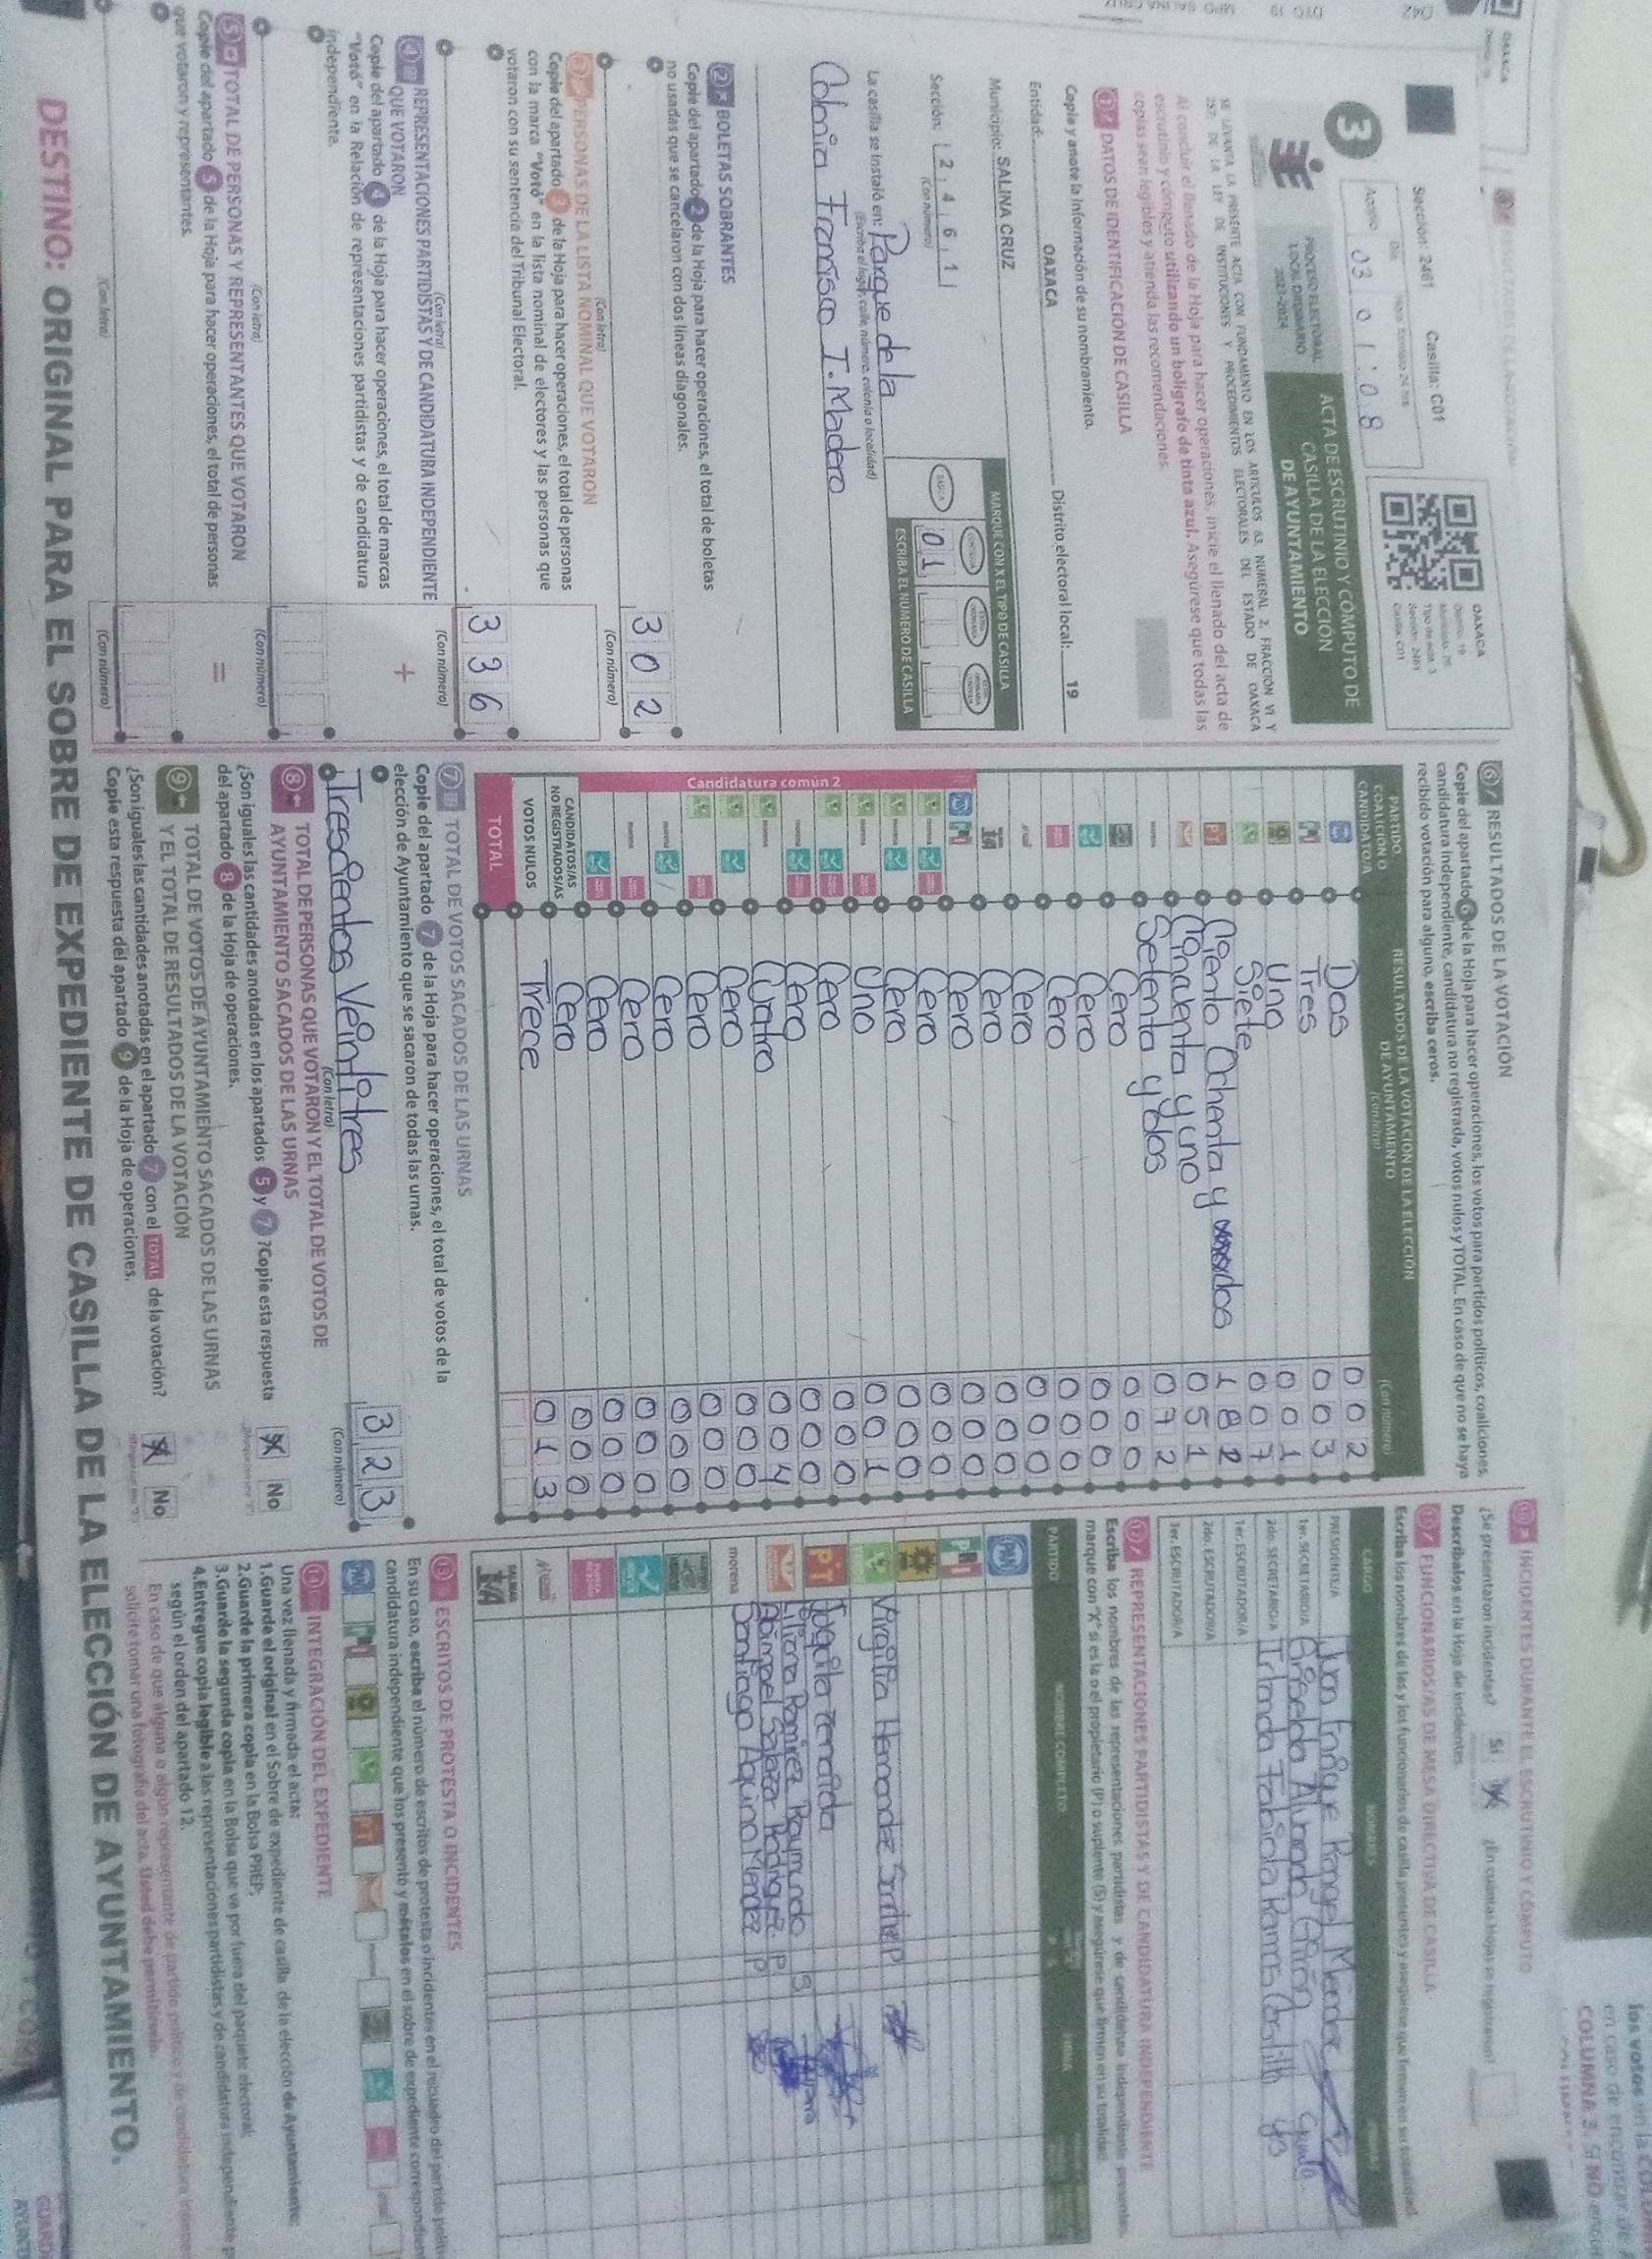 Sección: 2461 Casilla: C01
Acopio 03 01:08
OAXACA
PROCESO ELECTORAL
LOCAL ORDINARIO
2023-2024
ACTA DE ESCRUTINIO Y CÓMPUTO DE
CASILLA DE LA ELECCIÓN
DE AYUNTAMIENTO
3
SE LEVANTA LA PRESENTE ACTA CON FUNDAMENTO EN LOS ARTÍCULOS 63, NUMERAL 2, FRACCIÓN VI Y
257, DE LA LEY DE INSTITUCIONES Y PROCEDIMIENTOS ELECTORALES DEL ESTADO DE OAXACA
Al concluir el llenado de la Hoja para hacer operaciones, inicie el llenado del acta de
escrutinio y cómputo utilizando un bolígrafo de tinta azul. Asegúrese que todas las
copias sean legibles y atienda las recomendaciones.
1 DATOS DE IDENTIFICACIÓN DE CASILLA
Copie y anote la información de su nombramiento.
Entidad: OAXACA Distrito electoral local: 19
Municipio: SALINA CRUZ
Sección: 2 4 6 1
(Con número)
MARQUE CON X EL TIPO DE CASILLA
BÁSICA
0 1
ESCRIBA EL NÚMERO DE CASILLA
La casilla se instaló en: Parque de la
(Escriba el lugar, calle, número, colonia o localidad)
Colonia Francisco I. Madero
2 BOLETAS SOBRANTES
Copie del apartado 2 de la Hoja para hacer operaciones, el total de boletas
no usadas que se cancelaron con dos líneas diagonales.
302
(Con letra) (Con número)
3 PERSONAS DE LA LISTA NOMINAL QUE VOTARON
Copie del apartado 3 de la Hoja para hacer operaciones, el total de personas
con la marca "Votó" en la lista nominal de electores y las personas que
votaron con su sentencia del Tribunal Electoral.
336
(Con letra) (Con número)
4 REPRESENTACIONES PARTIDISTAS Y DE CANDIDATURA INDEPENDIENTE
QUE VOTARON
+
Copie del apartado 4 de la Hoja para hacer operaciones, el total de marcas
"Votó" en la Relación de representaciones partidistas y de candidatura
independiente.
(Con letra) (Con número)
5 TOTAL DE PERSONAS Y REPRESENTANTES QUE VOTARON
=
Copie del apartado 5 de la Hoja para hacer operaciones, el total de personas
que votaron y representantes.
(Con letra) (Con número)
6 RESULTADOS DE LA VOTACIÓN
Copie del apartado 6 de la Hoja para hacer operaciones, los votos para partidos políticos, coaliciones,
candidatura independiente, candidatura no registrada, votos nulos y TOTAL. En caso de que no se haya
recibido votación para alguno, escriba ceros.
PARTIDO,
COALICIÓN O
CANDIDATO/A
RESULTADOS DE LA VOTACIÓN DE LA ELECCIÓN
DE AYUNTAMIENTO
(Con letra)
(Con número)
Dos 002
Tres 003
Uno 001
Siete 007
PT Ciento Ochenta y dos 182
Cincuenta y uno 051
Setenta y dos 072
Cero 000
Cero 000
Cero 000
Cero 000
Cero 000
Cero 000
Candidatura común 2
Cero 000
Cero 000
Uno 001
Cero 000
Cero 000
Cuatro 004
Cero 000
Cero 000
Cero 000
Cero 000
Cero 000
CANDIDATOS/AS
NO REGISTRADOS/AS
Cero 000
VOTOS NULOS Trece 013
TOTAL
7 TOTAL DE VOTOS SACADOS DE LAS URNAS
Copie del apartado 7 de la Hoja para hacer operaciones, el total de votos de la
elección de Ayuntamiento que se sacaron de todas las urnas.
Trescientos Veintitres 323
(Con letra) (Con número)
8 TOTAL DE PERSONAS QUE VOTARON Y EL TOTAL DE VOTOS DE
AYUNTAMIENTO SACADOS DE LAS URNAS
¿Son iguales las cantidades anotadas en los apartados 5 y 7? Copie esta respuesta
del apartado 8 de la Hoja de operaciones.
No
9 TOTAL DE VOTOS DE AYUNTAMIENTO SACADOS DE LAS URNAS
Y EL TOTAL DE RESULTADOS DE LA VOTACIÓN
¿Son iguales las cantidades anotadas en el apartado 7 con el TOTAL de la votación?
Copie esta respuesta del apartado 9 de la Hoja de operaciones.
No
10 INCIDENTES DURANTE EL ESCRUTINIO Y CÓMPUTO
¿Se presentaron incidentes? Sí
Descríbalos en la Hoja de incidentes
11 FUNCIONARIOS/AS DE MESA DIRECTIVA DE CASILLA
CARGO
PRESIDENTE/A Juan Enrique Rangel Mendez
1er. SECRETARIO/A
2do. SECRETARIO/A
1er. ESCRUTADOR/A
2do. ESCRUTADOR/A
3er. ESCRUTADOR/A
12 REPRESENTACIONES PARTIDISTAS Y DE CANDIDATURA INDEPENDIENTE
Escriba los nombres de las representaciones partidistas y de candidatura independiente presentes,
marque con "X" si es la o el propietario (P) o suplente (S) y asegúrese que firmen en su totalidad.
PARTIDO NOMBRE COMPLETO FIRMA
PAN
PRI
Virgilia Hernandez P
PT
Liliana Ramirez Raymundo S
Salazar Rodriguez P
morena Santiago Aquino Mendez P
13 ESCRITOS DE PROTESTA O INCIDENTES
En su caso, escriba el número de escritos de protesta o incidentes en el recuadro del partido
candidatura independiente que los presentó y métalos en el sobre de expediente
14 INTEGRACIÓN DEL EXPEDIENTE
Una vez llenada y firmada el acta:
1.Guarde el original en el Sobre de expediente de casilla de la elección de Ayuntamiento;
2.Guarde la primera copia en la Bolsa PREP;
3.Guarde la segunda copia en la Bolsa que va por fuera del paquete electoral;
4.Entregue copia legible a las representaciones partidistas y de candidatura independiente
según el orden del apartado 12.
En caso de que alguna o algún representante de partido político y de candidatura
solicite tomar una fotografía del acta, Usted debe permitírselo.
DESTINO: ORIGINAL PARA EL SOBRE DE EXPEDIENTE DE CASILLA DE LA ELECCIÓN DE AYUNTAMIENTO.